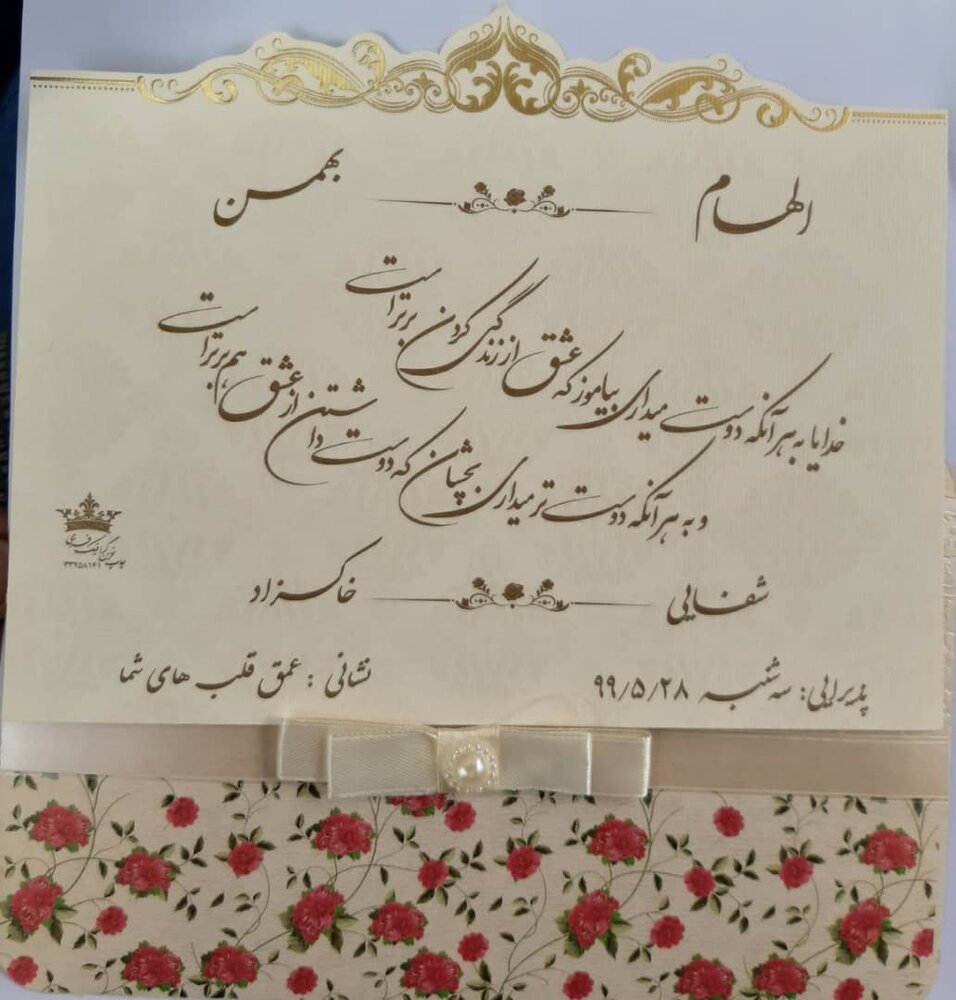 الهام
بهمن
خدایا به هر آنکه دوست میداری بیاموز که عشق از زندگی کردن برتر است
و به هر آنکه دوست تر میداری بچشان که دوست داشتن از عشق هم برتر است
شفایی
خاکسزاد
پذیرایی: سه شنبه ۹۹/۵/۲۸
نشانی : عمق قلب های شما
چاپ نوین گرافیک
۳۳۲۵۸۱۴۱